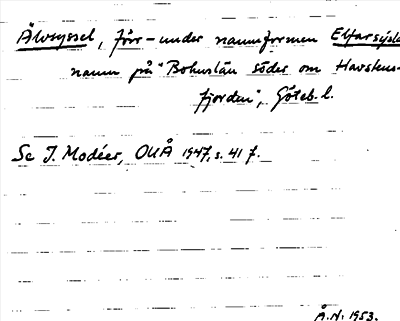 Älvsyssel, förr – under namnformen Elfarsýsla
namn på "Bohuslän söder om Havstens-
fjorden", Göteb. l.
Se I. Modéer, OUÅ 1947, s. 41 f.
Å.N. 1953.